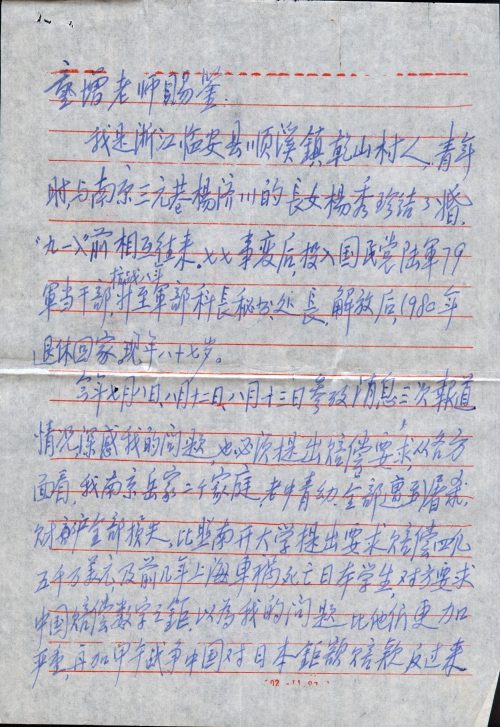 童增老师賜鉴:
我是浙江临安县顺溪鎮乾山村人,青年
时与南京三元巷楊济川的長女楊秀珍结了婚,
"九一八"前相互往来。七七事变后投入国民党陆軍79
抗战八年
軍当干部,升至軍部科長秘书处長,解放后,1980年
退休回家。现年八十七岁。
今年七月八日、八月十二日、八月十三日参攷消息三次报道
情况深感我的问题也必须提出赔偿要求,从各方
面看,我南京岳家二个家庭,老中青幼全部遭到屠杀,
财产全部損失,比照南开大学提出要求赔偿四亿
五千万美元,及前几年上海車祸死亡日本学生对方要求
中国赔偿数字之鉅,以為我的问题比他們更加
严重,再加甲午战争中国对日本鉅額赔款反过来